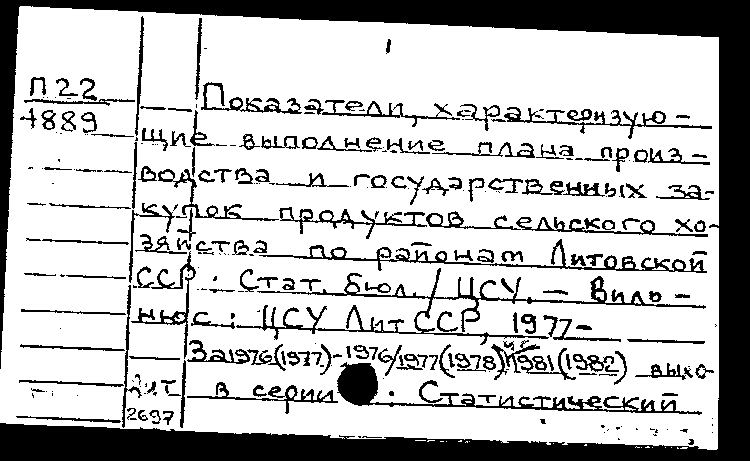 1
П22
4889
Показатели, характеризую-
щие выполнение плана произ-
водства и государственных за-
купок продуктов сельского хо-
зяйства по районам Литовской
ССР: Стат. бюл. / ЦСУ. — Виль-
нюс: ЦСУ ЛитССР, 1977-
За 1976(1977)-1976/1977(1978) 1981(1982) выхо-
в серии : Статистический
Лит
2697